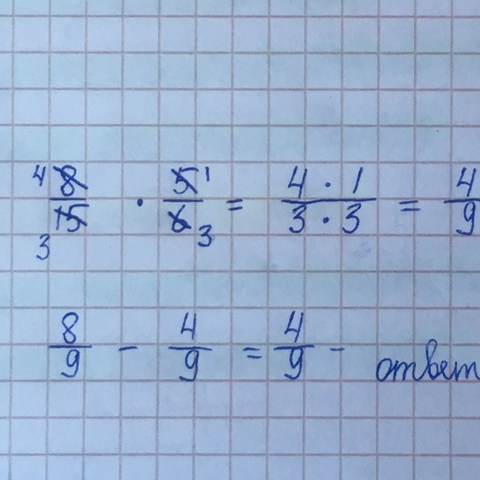 4 8/15 3 · 5 1/6 3 = 4 · 1/3 · 3 = 4/9
8/9 - 4/9 = 4/9 - ответ